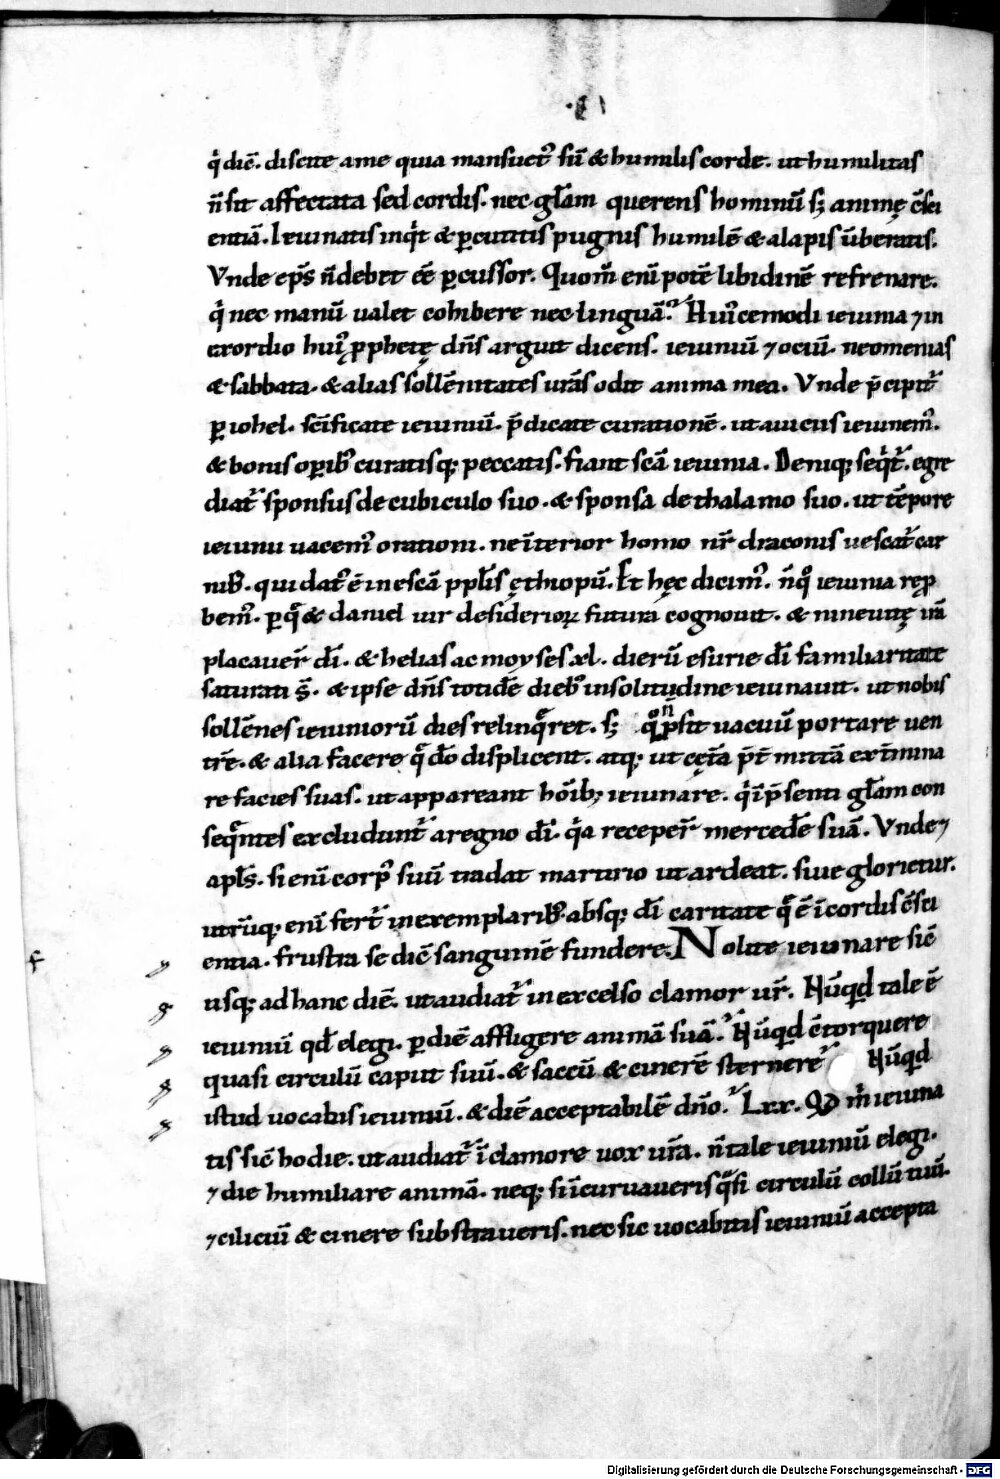 q͛ dic̄. discite a me quia mansuet᷒ sū & humilis corde. ut humilitas
n̄ sit affectata sed cordis. nec gl̄am querens hominū sꝫ animę c̄sci
entiā. Ieiunatis inq͛t & ꝑcutitis pugnis humilē & alapis ūberatis.
Vnde ep̄s n̄ debet eē ꝑcussor. Quom̄ eni potē libidinē refrenare.
q͛ nec manū ualet cohibere nec linguā. Hui᷒cemodi ieiunia ⁊ in
exordio hui᷒ ꝓphetę dn̄s arguit dicens. ieiuniū ⁊ ociū. neomenias
& sabbata. & alias sollēnitates ur̄as odit anima mea. Vnde p̄cipit᷑
ꝑ iohel. sc̄ificate ieiuniū. p̄dicate curationē. ut a uiciis ieiunem᷒.
& bonis oꝑib᷒ curatisqꝫ peccatis. fiant sc̄a ieiunia. Deniqꝫ seq͛t᷑. egre
diat᷑ sponsus de cubiculo suo. & sponsa de thalamo suo. ut tēpore
ieiunii uacem᷒ orationi. ne īterior homo nr̄ draconis uescat᷑ car
nib᷒. qui dat᷒ ē in escā ppl̄is ęthiopū. Et hęc dicim᷒. n̄ qͦ ieiunia reꝓ
bem᷒. ꝑ qͣ & daniel uir desiderioꝝ futura cognouit. & nineuitę irā
placauer̄ dī. & helias ac moyses xl. dierū esurie dī familiaritate
saturati s̄. & ipse dn̄s totidē dieb᷒ in solitudine ieiunauit. ut nobis
sollēnes ieiuniorū dies relinq̄ret. sꝫ qͦ n̄ p̄sit uacuū portare uen
trē. & alia facere qͣ dō displicent. atqꝫ ut cęt̄a p̄t̄mittā ext̄mina
re facies suas. ut appareant hōib᷒ ieiunare. q͛ ī p̄senti gl̄am con
seq̄ntes excludunt᷑ a regno dī. q͛a receper̄ mercedē suā. Vnde ⁊
apl̄s. si eni corp᷒ suū tradat martirio ut ardeat. siue glorietur.
utrūqꝫ eni fert᷑ in exemplarib᷒. absqꝫ dī caritate qͣ ē ī cordis c̄sci
entia. frustra se dic̄ sanguinē fundere. Nolite ieiunare sic̄
usqꝫ ad hanc diē. ut audiat᷑ in excelso clamor ur̄. Nūqd tale ē
ieiuniū qd̄ elegi. ꝑ diē affligere animā suā. Nūqd c̄torquere
quasi circulū caput suū. & saccū & cinerē sternere Nūqd
istud uocabis ieiuniū. & diē acceptabilē dn̄o. Lxx. Qd m͛ ieiuna
tis sic̄ hodie. ut audiat᷑ ī clamore uox ur̄a. n̄ tale ieiuniū elegi.
⁊ die humiliare animā. neqꝫ si īcuruaueris qͣsi circulū collū tuū.
⁊ ciliciū & cinere substraueris. nec sic uocabitis ieiuniū accepta
Digitalisierung gefördert durch die Deutsche Forschungsgemeinschaft - DFG